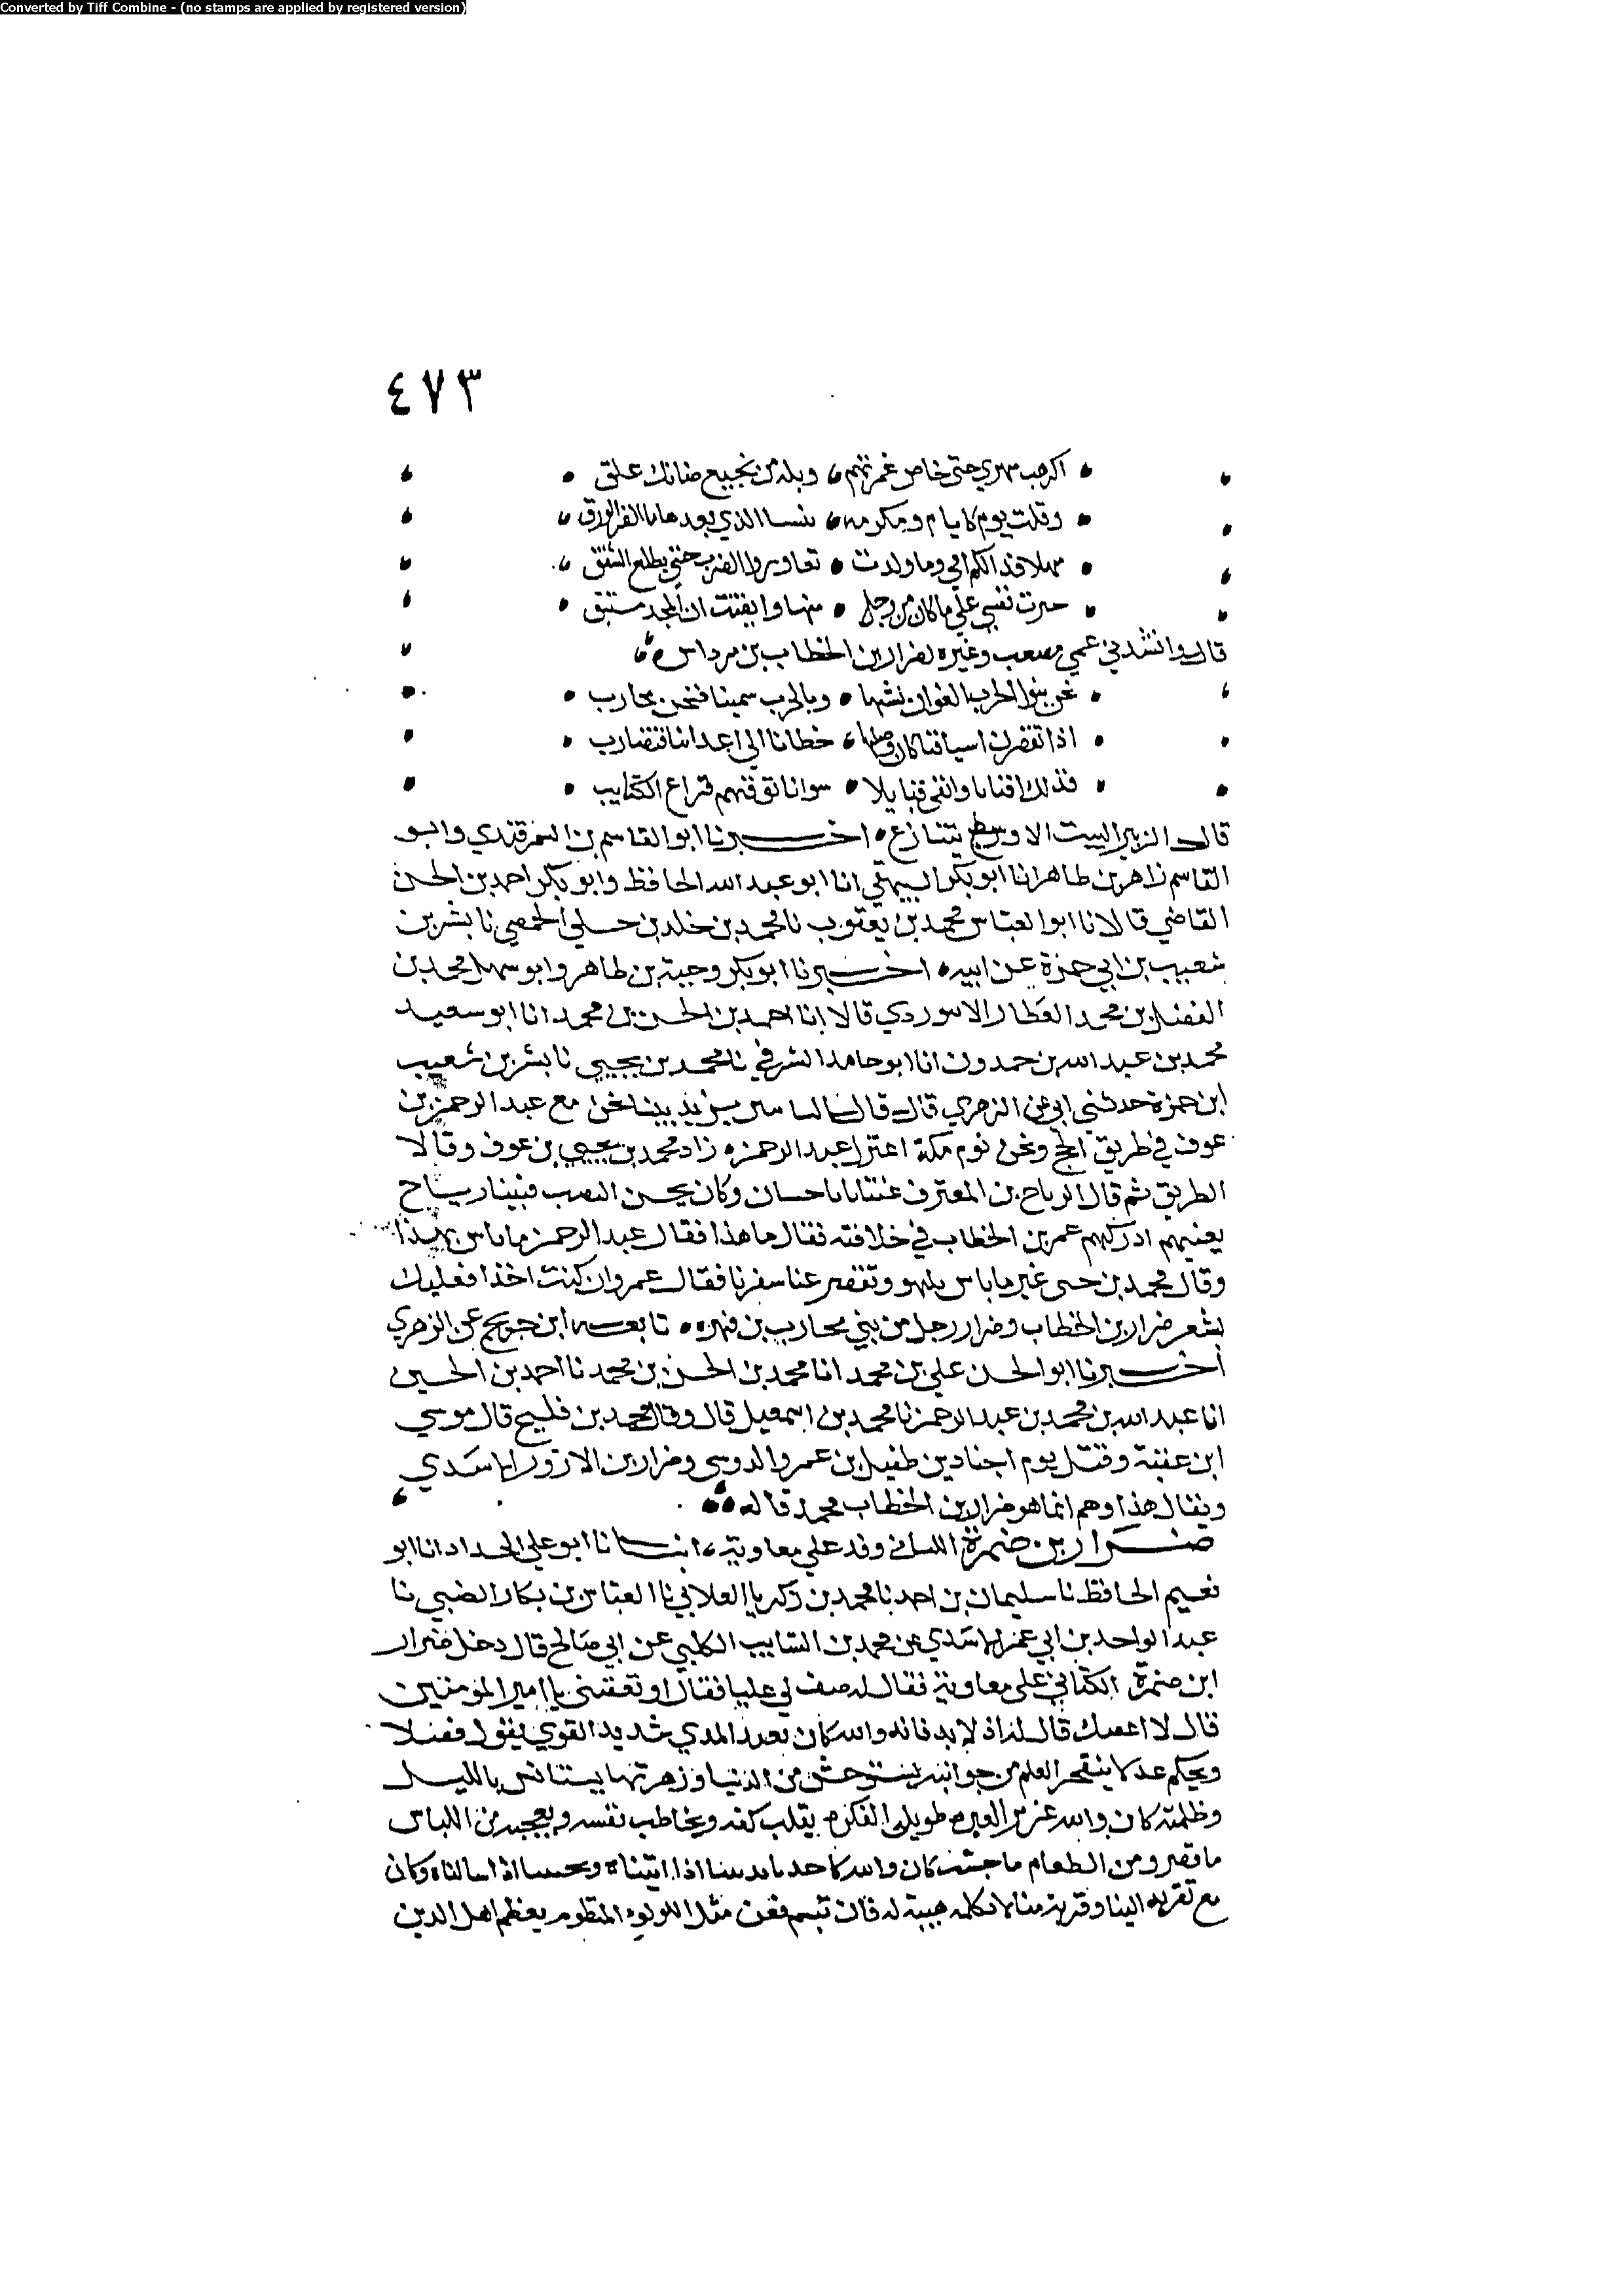 Converted by Tiff Combine - (no stamps are applied by registered version)
٤٧٣
اكرهت مهري حتى خاض غمرتهم وبله من نجيع عانك علق
وقلت يوم كايام ومكرمه الذي بعدها ما الفر الورق
مهلا فذالكم امي وما ولدت تعاوروا الضرب حتى يطلع الشفق
خيرت نفسي علي ما كان من وجل منها وايقنت ان المجد مستبق
قال وانشدني عمي مصعب وغيره لضرار بن الخطاب بن مرداس
نحن بنوا الحرب العوان نشبها وبالحرب سمينا فنحن محارب
اذا تقصرن اسيافنا كان وصلها خطانا الي اعدائنا فتضارب
فذلك افنانا وابقى قبايلا سوانا توقتهم قراع الكتايب
قال الزبير البيت الاوسط يتنازع اخبرنا ابو القاسم بن السمرقندي وابو
القاسم زاهر بن طاهر انا ابو بكر البيهقي انا ابو عبد الله الحافظ وابو بكر احمد بن الحسن
القاضي قالا نا ابو العباس محمد بن يعقوب نا محمد بن خلد بن حلي الحمصي نا بشر بن
شعيب بن ابي حمزة عن ابيه اخبرنا ابو بكر وجيه بن طاهر وابو سهل محمد بن
الفضل بن محمد العطار الابيوردي قالا انا احمد بن الحسن بن محمد انا ابو سعيد
محمد بن عبد الله بن حمدون انا ابو حامد الشرقي نا محمد بن يحيي نا بشر بن شعيب
ابن حمزة حدثني ابي عن الزهري قال قال السايب بن يزيد بينا نحن مع عبد الرحمن بن
عوف في طريق الحج ونحن نوم مكة اعتزل عبد الرحمن زاد محمد بن يحيي بن عوف وقالا
الطريق ثم قال لرباح بن المعترف غننا يا با حسان وكان يحسن النصب فبينا رباح
يغنيهم ادركهم عمر بن الخطاب في خلافته فقال ما هذا فقال عبد الرحمن ما باس بهذا
وقال محمد بن يحيى غير ما باس يلهو وتقصر عنا سفرنا فقال عمر وان كنت اخذا فعليك
بشعر ضرار بن الخطاب وضرار رجل من بني محارب بن فهر تابعه ابن جريج عن الزهري
اخبرنا ابو الحسن علي بن محمد انا محمد بن الحسن بن محمد نا احمد بن الحسين
انا عبد الله بن محمد بن عبد الرحمن نا محمد بن اسمعيل قال وقال محمد بن فليح قال موسي
ابن عقبة وقتل يوم اجنادين طفيل بن عمرو الدوسي وضرار بن الازور الاسدي
ويقال هذا وهم انما هو ضرار بن الخطاب محمد قاله
ضرار بن ضمرة الكناني وفد علي معاوية انبانا ابو علي الحداد انا ابو
نعيم الحافظ نا سليمان بن احمد نا محمد بن زكريا الغلابي نا العباس بن بكار الضبي نا
عبد الواحد بن ابي عمر الاسدي عن محمد بن السايب الكلبي عن ابي صالح قال دخل ضرار
ابن ضمرة الكناني على معاوية فقال له صف لي عليا فقال او تعفني يا امير المؤمنين
قال لا اعفيك قال له اذ لابد فانه والله كان بعيد المدي شديد القوي يقول فصلا
ويحكم عدلا ينفجر العلم من جوانبه يستوحش من الدنيا وزهرتها يستانس بالليل
وظلمته كان والله غزير العبره طويل الفكره يقلب كفه ويخاطب نفسه ويعجبه من اللباس
ما قصر ومن الطعام ما جشب كان والله كاحدنا يدنينا اذا اتيناه ويجيبنا اذا سالناه وكان
مع تقربه الينا وقربه منا لا نكلمه هيبة له فان تبسم فعن مثل اللولوء المنظوم يعظم اهل الدين